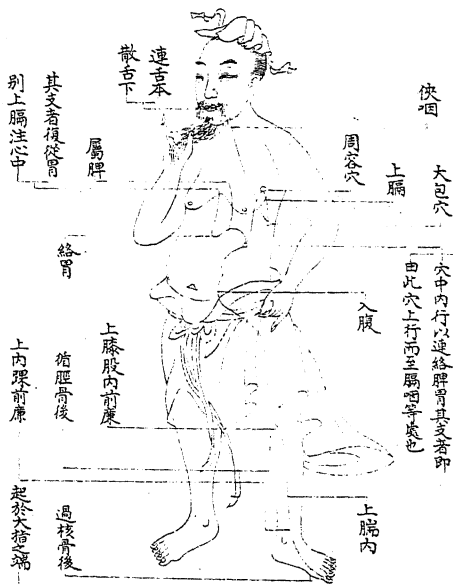 俠咽
大包穴
穴中內行以連絡脾胃其支者即
由此穴上行而至膈咽等處也
上膈
周容穴
入腹
上腨內
連舌本
散舌下
屬脾
其支者復從胃
別上膈注心中
絡胃
上膝股內前廉
循脛骨後
上內踝前廉
過核骨後
起於大指之端